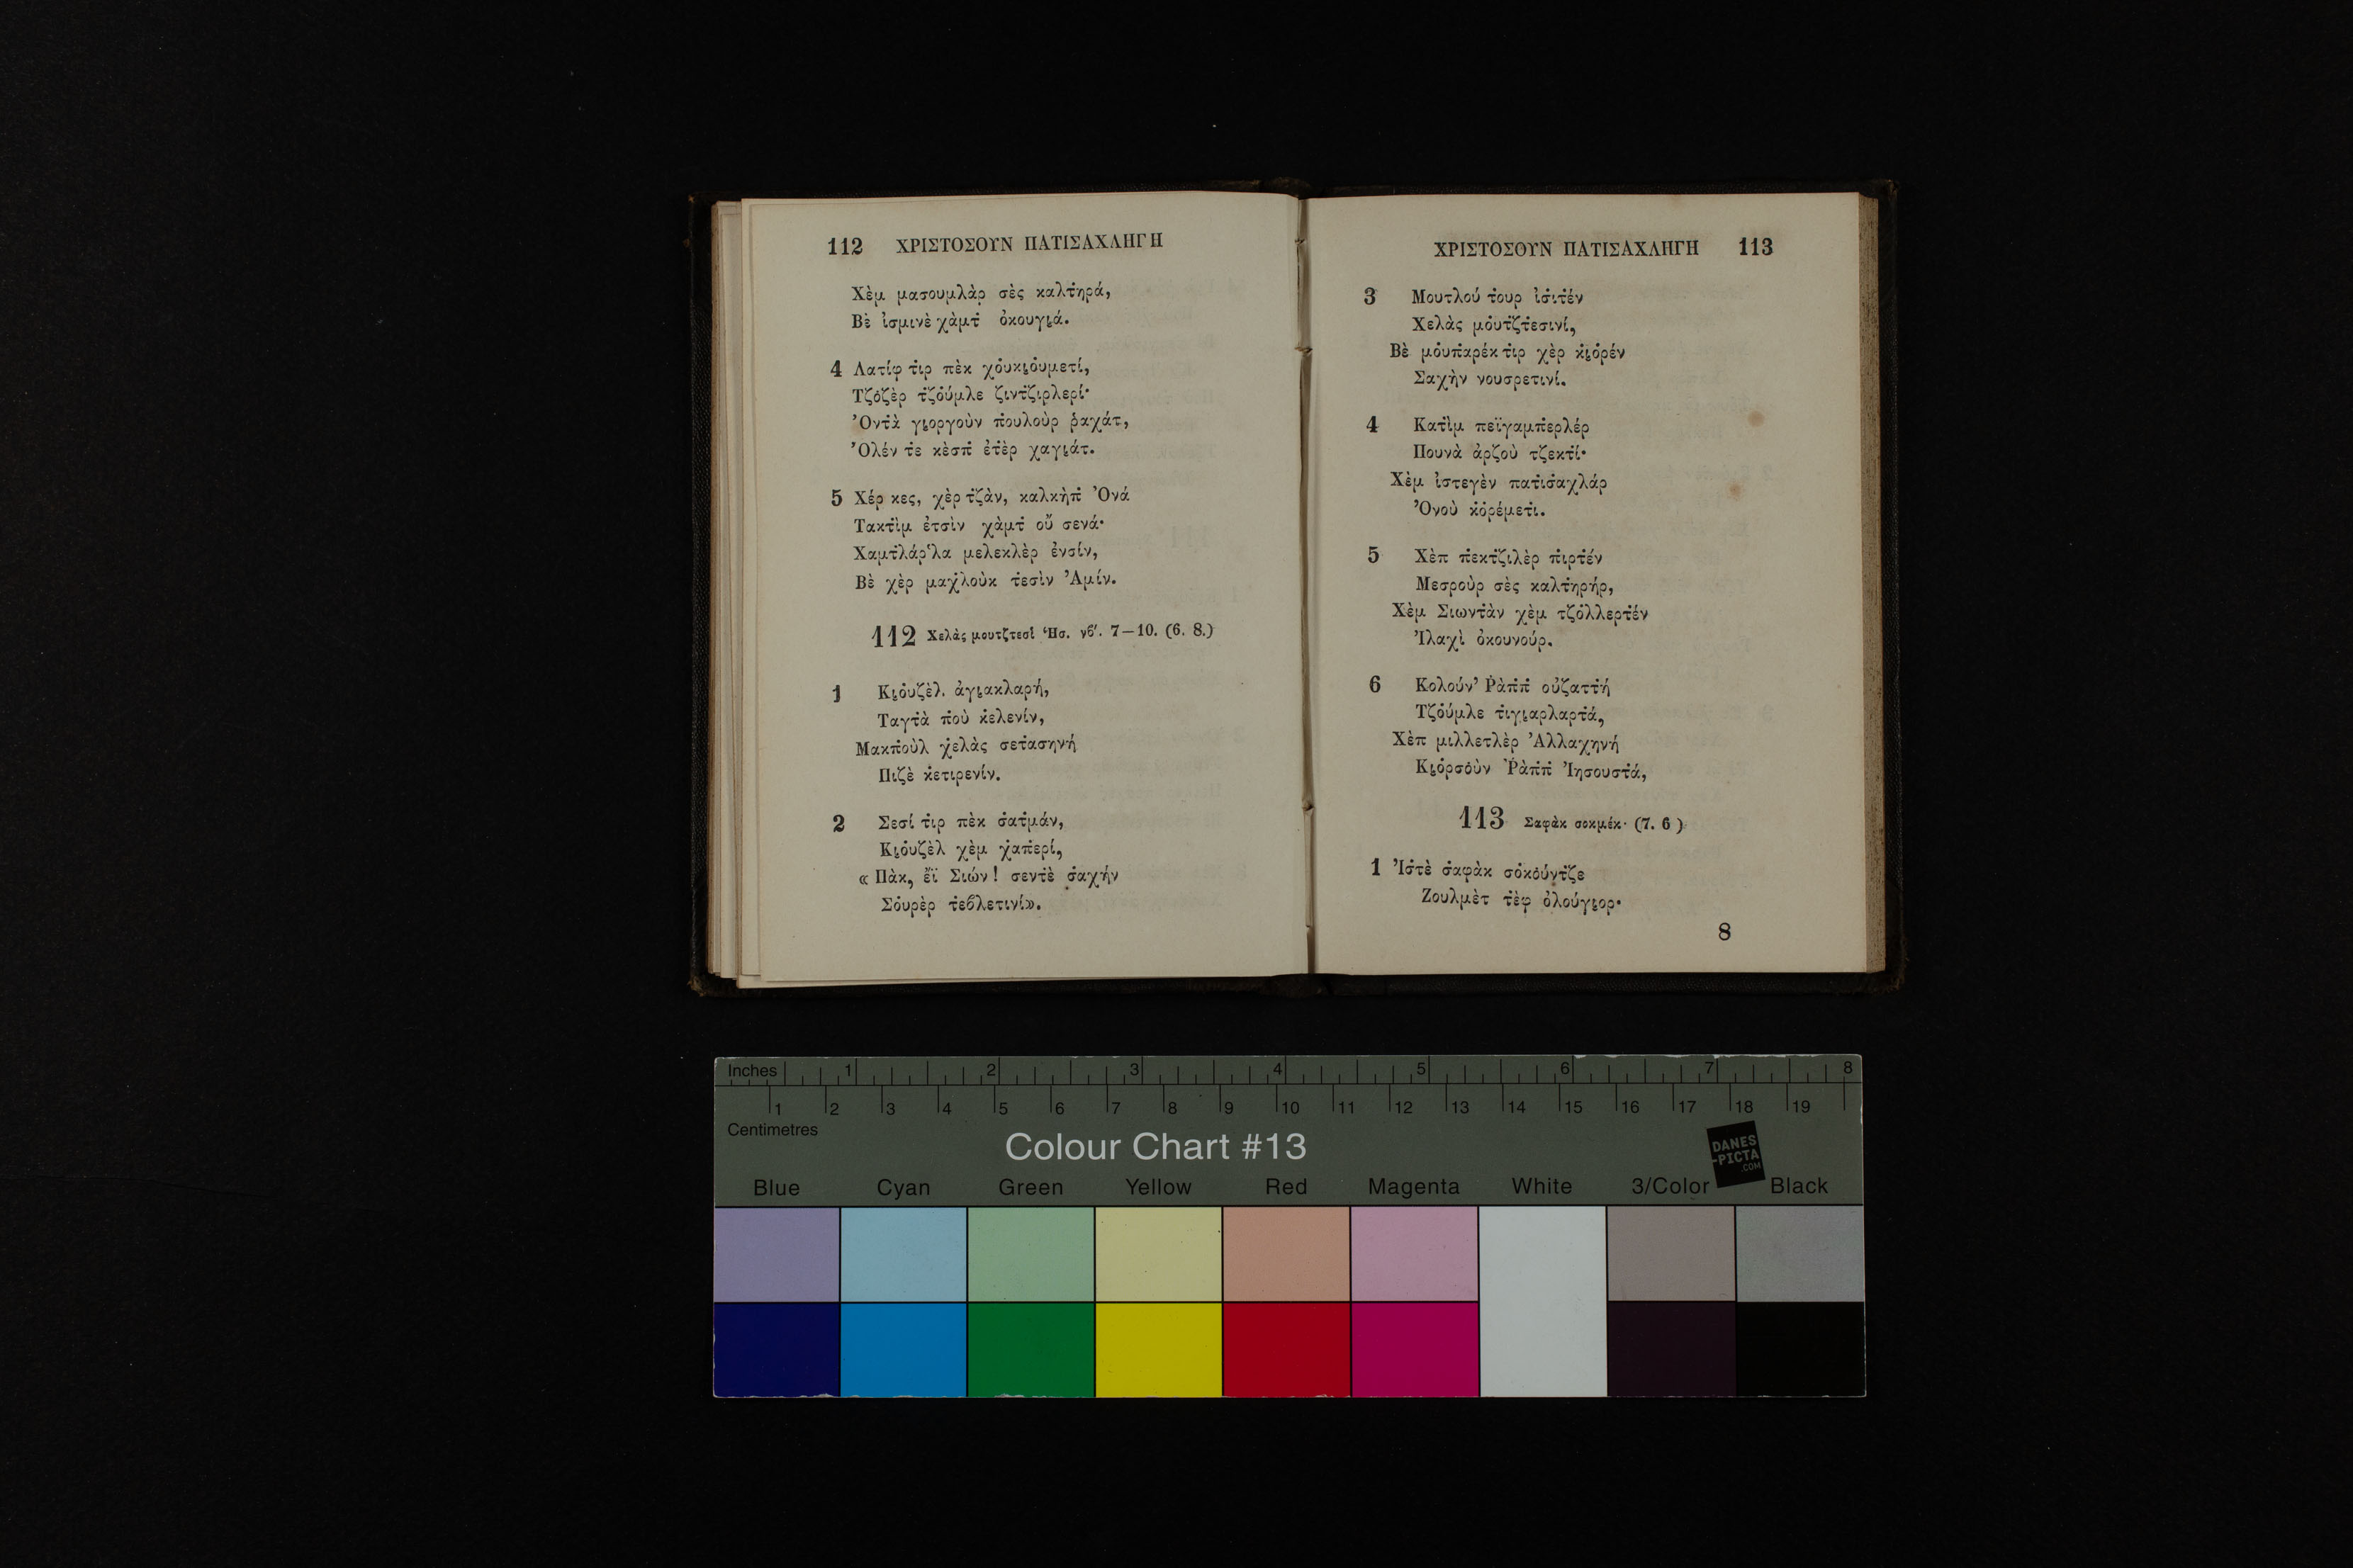 112 ΧΡΙΣΤΟΣΟΥΝ ΠΑΤΙΣΑΧΛΗΓΗ
Χὲμ μασουμλὰρ σὲς καλτ̇ηρά,
Βὲ ἰσμινὲ χὰμτ̇ ὀκουγι̮ά.
4 Λατίφ τ̇ιρ πὲκ χὀυκι̮ὀυμετί,
Τζὀζὲρ τ̇ζὀύμλε ζιντ̇ζιρλερί·
Ὀντ̇ὰ γι̮οργοὺν π̇ουλοὺρ ῥαχάτ,
Ὀλέν τ̇ε κὲσπ̇ ἐτ̇ὲρ χαγι̮άτ.
5 Χέρ κες, χὲρ τ̇ζὰν, καλκὴπ̇ Ὀνά
Τακτ̇ὶμ ἐτσὶν χὰμτ̇ οὔ σενά·
Χαμτ̇λάρ'λα μελεκλὲρ ἐνσίν,
Βὲ χὲρ μαχ̇λοὺκ τ̇εσὶν Ἀμίν.
112 Χελὰς μουτζτεσὶ Ἡσ. νβ'. 7—10. (6. 8.)
1 Κι̮ὀυζὲλ. ἀγι̮ακλαρή,
Ταγτ̇ὰ π̇οὺ κ̇ελενίν,
Μακπ̇οὺλ χ̇ελὰς σετ̇ασηνή
Πιζὲ κ̇ετιρενίν.
2 Σεσί τ̇ιρ πὲκ σ̇ατ̇μάν,
Κι̮ὀυζὲλ χὲμ χ̇απ̇ερί,
« Πὰκ, ἔϊ Σιών! σεντ̇ὲ σ̇αχήν
Σὀυρὲρ τ̇εβλετινί».
ΧΡΙΣΤΟΣΟΥΝ ΠΑΤΙΣΑΧΛΗΓΗ 113
3 Μουτλού τ̇ουρ ἰσ̇ιτ̇έν
Χελὰς μὀυτ̇ζτ̇εσινί,
Βὲ μὀυπ̇αρέκ τ̇ιρ χὲρ κ̇ι̮ὀρέν
Σαχὴν νουσρετινί.
4 Κατ̇ὶμ πεϊγαμπ̇ερλέρ
Πουνὰ ἀρζοὺ τζεκτ̇ί·
Χὲμ ἰστεγὲν πατ̇ισ̇αχλάρ
Ὀνοὺ κ̇ὀρέμετ̇ι.
5 Χὲπ π̇εκτ̇ζιλὲρ π̇ιρτ̇έν
Μεσροὺρ σὲς καλτ̇ηρήρ,
Χὲμ Σιωντ̇ὰν χὲμ τζὀλλερτ̇έν
Ἰλαχὶ ὀκουνούρ.
6 Κολούν' Ῥὰπ̇π̇ οὐζαττ̇ή
Τζὀύμλε τ̇ιγι̮αρλαρτ̇ά,
Χὲπ μιλλετλὲρ Ἀλλαχηνή
Κι̮ὀρσὀὺν Ῥὰπ̇π̇ Ἰησουστ̇ά,
113 Σαφὰκ σοκμέκ· (7. 6 )
1 Ἰσ̇τὲ σ̇αφὰκ σὀκὀύντ̇ζε
Ζουλμὲτ τ̇ὲφ ὀλούγι̮ορ·
8
Inches 1 2 3 4 5 6 7 8
1 2 3 4 5 6 7 8 9 10 11 12 13 14 15 16 17 18 19
Centimetres
Colour Chart #13
DANES
-PICTA
.COM
Blue Cyan Green Yellow Red Magenta White 3/Color Black